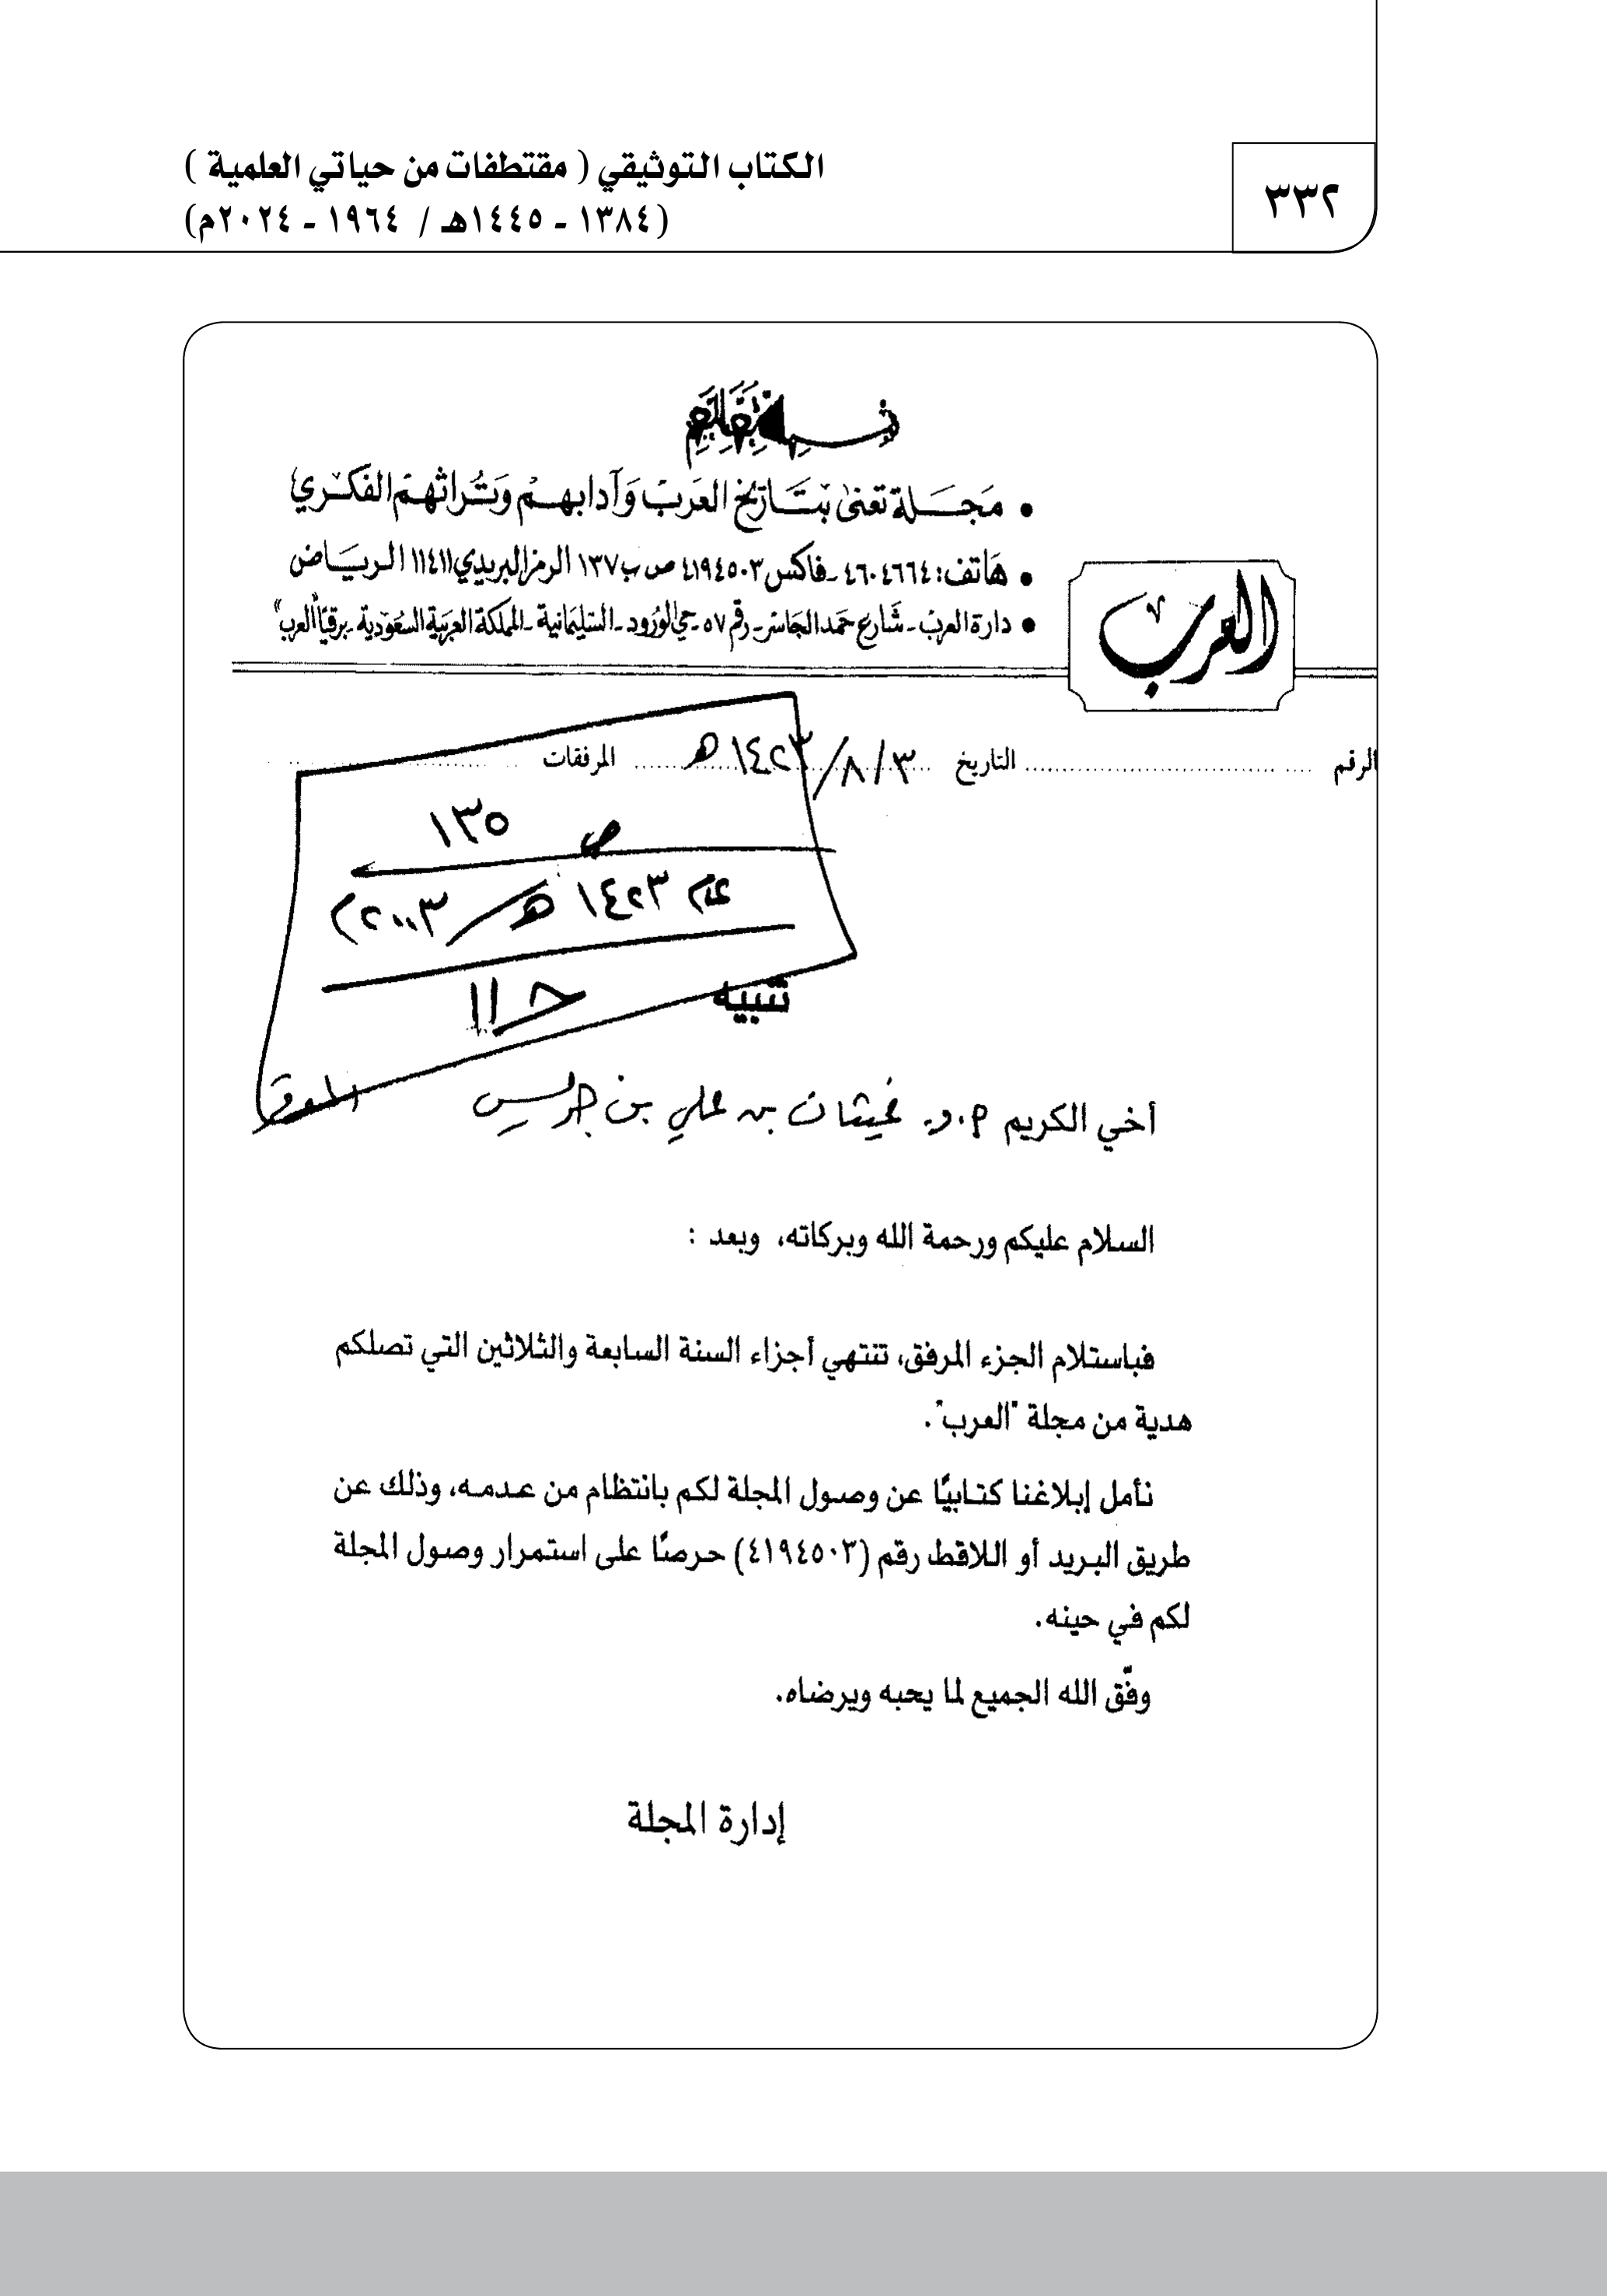 الكتاب التوثيقي ( مقتطفات من حياتي العلمية )
(١٣٨٤ - ١٤٤٥هـ / ١٩٦٤ - ٢٠٢٤م)
٣٣٢
• مَجَلة تعنىٰ بتَاريخ العَربْ وَآدابهمْ وَتُراثهم الفكري
• هَاتف: ٤٦٠٤٦٦٤ - فاكس ٤١٩٤٥٠٣ ص ب ١٣٧ الرمز البريدي ١١٤١١ الريَاض
• دارة العرب - شَارع حمَد الجَاسر - رقم ٥٧ - حي الوُرود - السّليمَانية - المملكة العَربيَة السعُودية - برقيًا "العرب"
العرب
الرقم التاريخ ١٤٢٣/٨/٣ هـ المرفقات
ص ١٣٥
عام ١٤٢٣ هـ/ ٢٠٠٣م
حـ ١١
تنبيه
أخي الكريم أ.د. غيثان بن علي بن جريس الموقر
السلام عليكم ورحمة الله وبركاته، وبعد :
فباستلام الجزء المرفق، تنتهي أجزاء السنة السابعة والثلاثين التي تصلكم
هدية من مجلة "العرب".
نأمل إبلاغنا كتابيًا عن وصول المجلة لكم بانتظام من عدمه، وذلك عن
طريق البريد أو اللاقط رقم (٤١٩٤٥٠٣) حرصًا على استمرار وصول المجلة
لكم في حينه.
وفّق الله الجميع لما يحبه ويرضاه.
إدارة المجلة